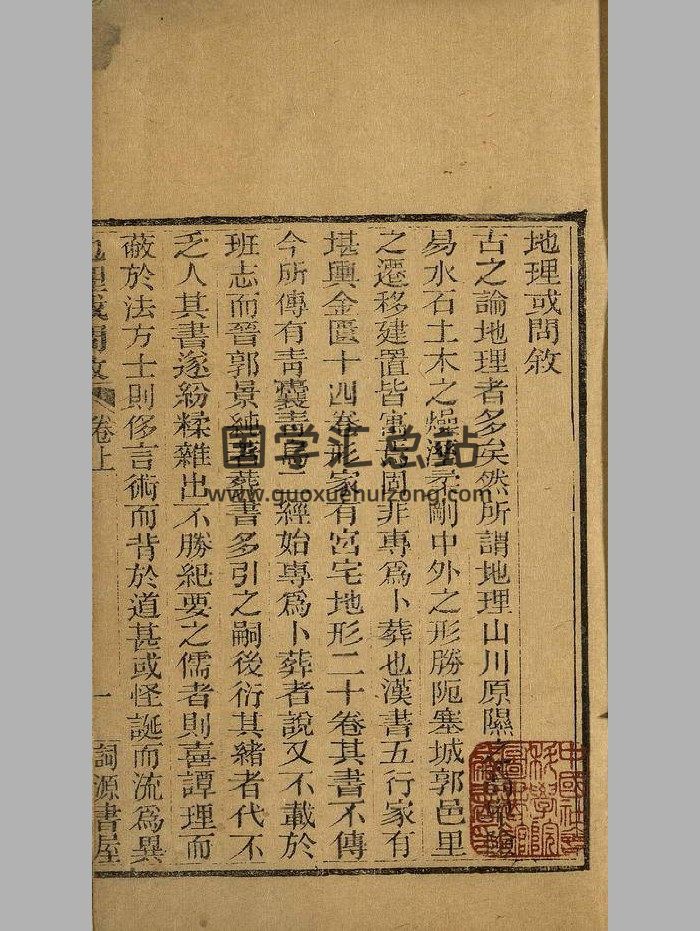 地理或問敘
古之論地理者多矣然所謂地理山川原隰之
易水石土木之燥濕柔剛中外之形勝阨塞城郭邑里
之遷移建置皆寓焉固非專為卜葬也漢書五行家有
堪輿金匱十四卷形家有宮宅地形二十卷其書不傳
今所傳有青囊青烏二經始專為卜葬者說又不載於
班志而晉郭景純著葬書多引之嗣後衍其緒者代不
乏人其書遂紛糅雜出不勝紀要之儒者則喜譚理而
蔽於法方士則侈言術而背於道甚或怪誕而流為異
地理或問敘 卷上 一 詞源書屋
国学汇总站
www.guoxuehuizong.com
中國社
科學院